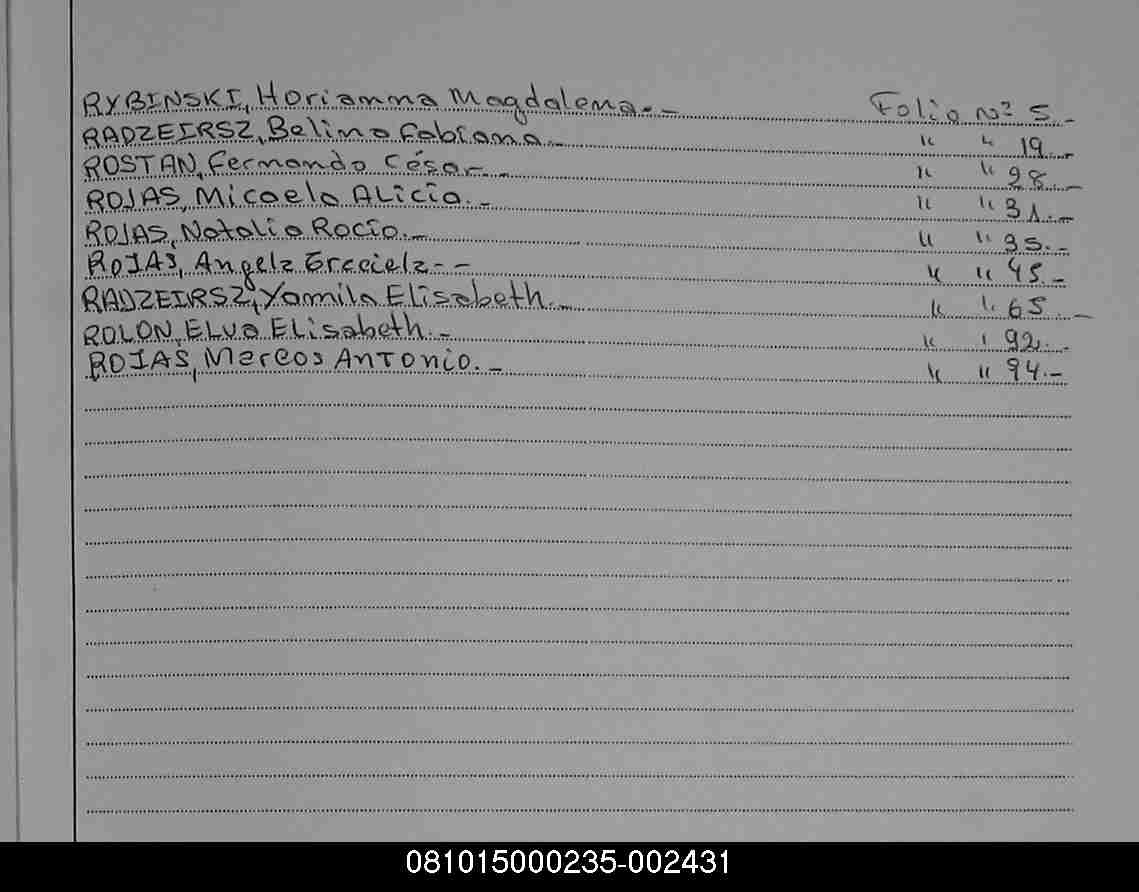 RYBINSKI, Morianna Magdalena.- Folio Nº 5.-
RADZEIRSZ, Belina Fabiana.- " " 19.-
ROSTAN, Fernando César.- " " 28.-
ROJAS, Micaela ALicia.- " " 31.-
ROJAS, Natalia Rocío.- " " 35.-
ROJAS, Angela Graciela-- " " 45.-
RADZEIRSZ, Yamila Elisabeth.- " " 65.-
ROLON, ELva ELisabeth.- " " 92.-
ROJAS, Marcos Antonio.- " " 94.-
081015000235-002431